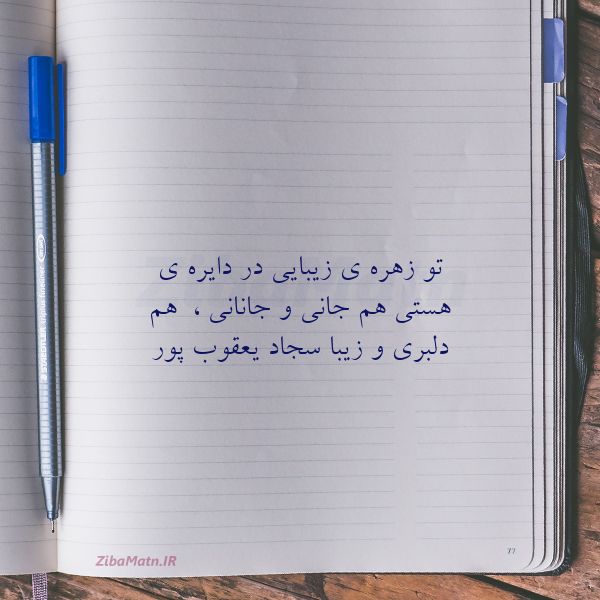 تو زهره ی زیبایی در دایره ی
هستی هم جانی و جانانی ، هم
دلبری و زیبا سجاد یعقوب پور
ZibaMatn.IR
77